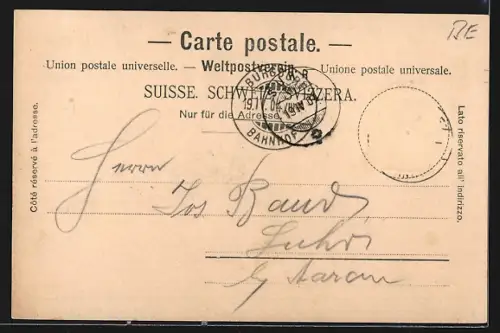 BE
— Carte postale. —
Union postale universelle. — Weltpostverein. — Unione postale universale.
SUISSE. SCHWEIZ. SVIZZERA.
Nur für die Adresse.
BURGDORF
19.IV.04
BAHNHOF
Côté réservé à l'adresse.
Lato riservato all'indirizzo.
Herrn
Jos Baud,
Suhr
b/ Aarau